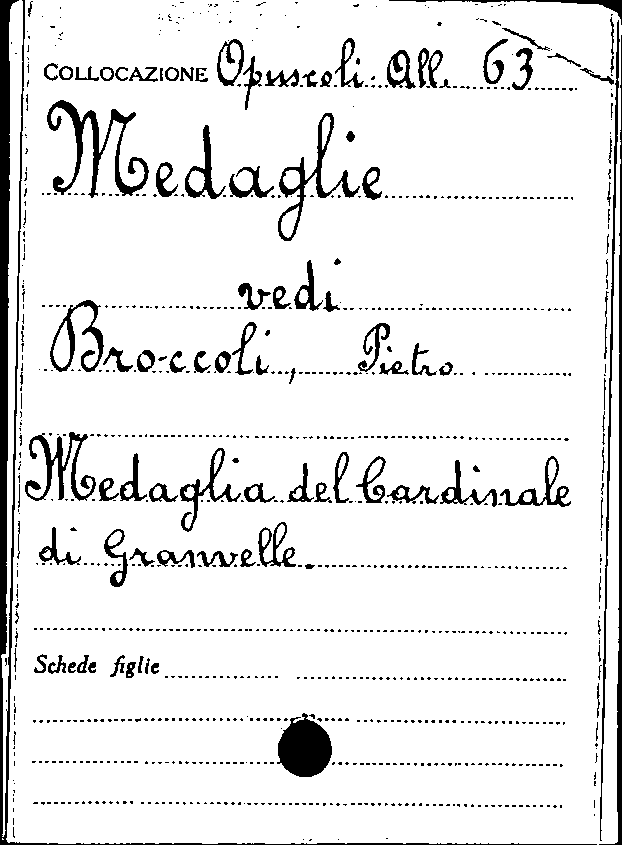 COLLOCAZIONE Opuscoli. All. 63
Medaglie
vedi
Broccoli, Pietro
Medaglia del Cardinale
di Granvelle.
Schede figlie